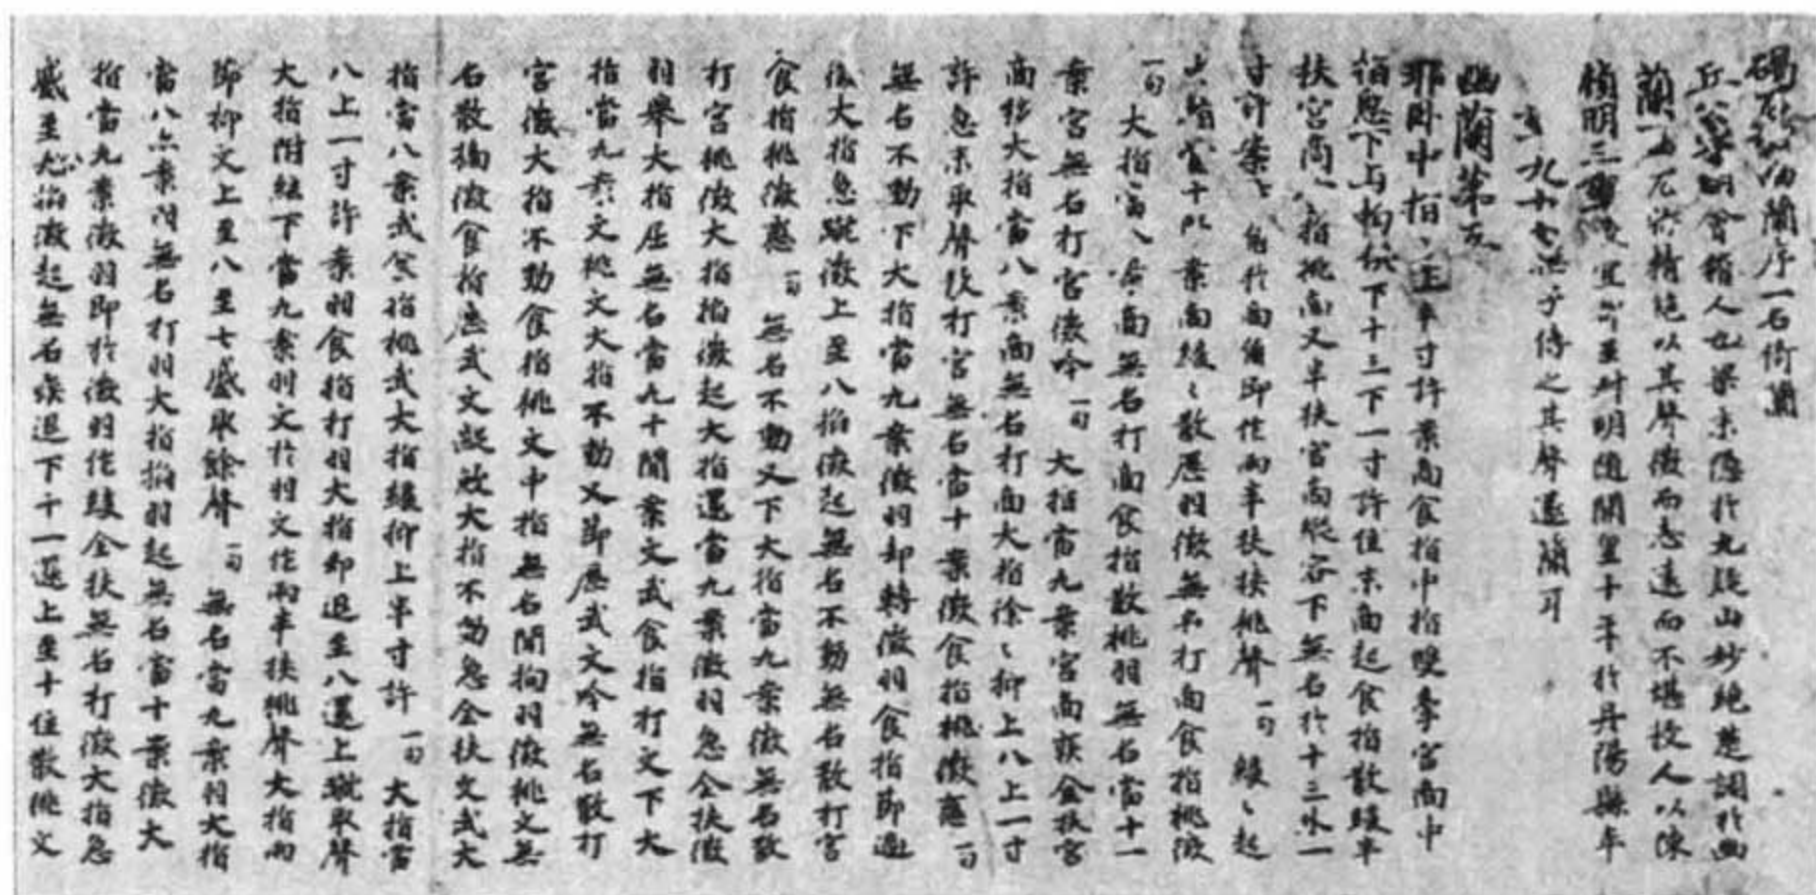 碣石調幽蘭序一名倚蘭
丘公字明會稽人也梁末隱於九疑山妙絕楚調於幽
蘭一曲尤特精絕以其聲微而志遠而不堪授人以陳
禎明三年授宜都王叔明隨開皇十年於丹陽縣卒
九十七無子傳之其聲遂簡耳
幽蘭第五
耶臥中指半寸許案商食指中指雙牽宮商中
指急下與拘俱下十三下一寸許住末商起食指散緩半
扶宮商食指挑商又半扶宮商縱容下無名於十三外一
寸許案商角於商角即作兩半扶挾挑聲一句 緩緩起
無名當十以案商緩緩散歷羽徵無名打商食指挑徵
一句 大指當八案商無名打商食指散挑羽無名當十一
案宮無名打宮徵吟一句 大指當九案宮商疾全扶宮
商移大指當八案商無名打商大指徐徐抑上八上一寸
許急末取聲散打宮無名當十案徵食指挑徵應一句
無名不動下大指當九案徵羽却轉徵羽食指節過
徵大指急蹴徵上至八掐徵起無名不動無名散打宮
食指挑徵應一句 無名不動又下大指當九案徵無名散
打宮挑徵大指掐徵起大指還當九案徵羽急全扶徵
羽舉大指屈無名當九十間案文武食指打文下大
指當九案文挑文大指不動又節歷武文吟無名散打
宮徵大指不動食指挑文中指無名間拘羽徵挑文無
名散摘徵食指歷武文蹴散大指不動急全扶文武大
指當八案武食指挑武大指緩抑上半寸許一句 大指當
八上一寸許案羽食指打羽大指却退至八還上蹴取聲
大指附絃下當九案羽文於羽文作兩半挾挑聲大指兩
節抑文上至八至七蹙取餘聲一句 無名當九案羽大指
當八上案羽無名打羽大指掐羽起無名當十案徵大
指當九案徵羽即於徵羽作緩全扶無名打徵大指急
蹙至九掐徵起無名疾退下十一還上至十住散挑文